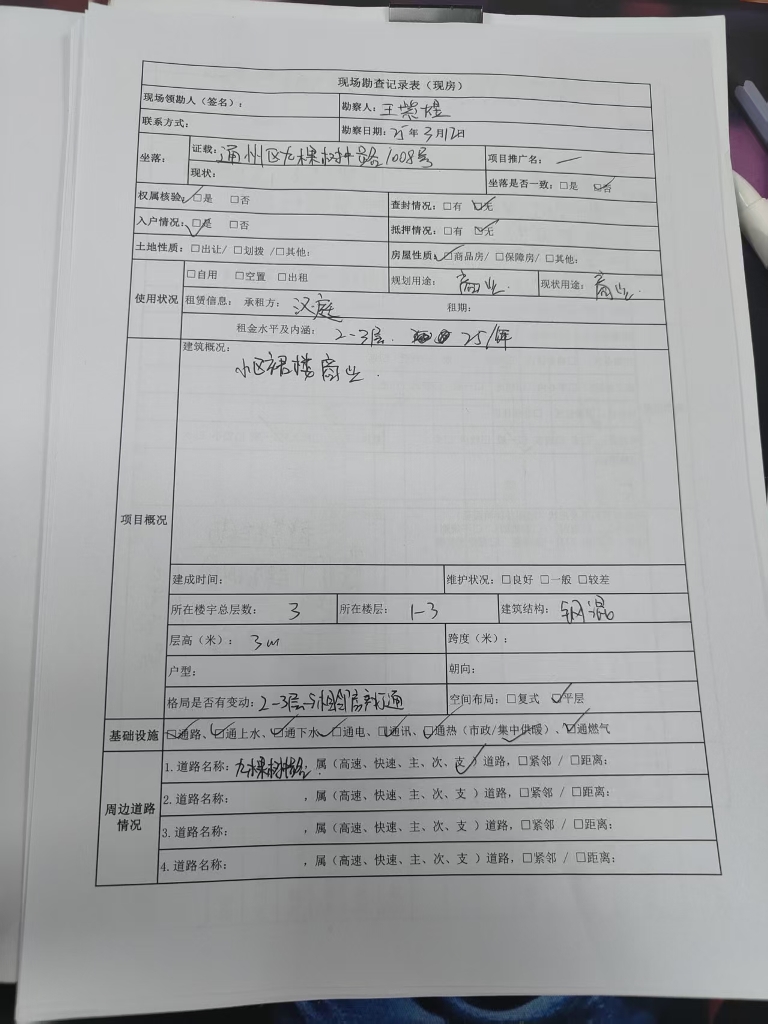 现场勘查记录表（现房）
现场领勘人（签名）： 勘察人：王紫煜
联系方式： 勘察日期：25年3月12日
坐落： 证载：通州区九棵树中路1008号 项目推广名：—
现状： 坐落是否一致：□是 ☑否
权属核验：☑是 □否 查封情况：□有 ☑无
入户情况：☑是 □否 抵押情况：□有 ☑无
土地性质：□出让/ □划拨 /□其他： 房屋性质：☑商品房/ □保障房/ □其他：
使用状况 □自用 □空置 □出租 规划用途：商业 现状用途：商业
租赁信息： 承租方：汉庭 租期：
租金水平及内涵：2-3层. 25/
项目概况 建筑概况：
小区裙楼商业.
建成时间： 维护状况：□良好 □一般 □较差
所在楼宇总层数：3 所在楼层：1-3 建筑结构：钢混
层高（米）：3m 跨度（米）：
户型： 朝向：
格局是否有变动：2-3层与相邻房产打通 空间布局：□复式 ☑平层
基础设施 ☑通路、☑通上水、☑通下水、☑通电、☑通讯、☑通热（市政/集中供暖）、☑通燃气
周边道路情况 1.道路名称：九棵树中路，属（高速、快速、主、次、支✓）道路，□紧邻 / □距离：
2.道路名称： ，属（高速、快速、主、次、支 ）道路，□紧邻 / □距离：
3.道路名称： ，属（高速、快速、主、次、支 ）道路，□紧邻 / □距离：
4.道路名称： ，属（高速、快速、主、次、支 ）道路，□紧邻 / □距离：